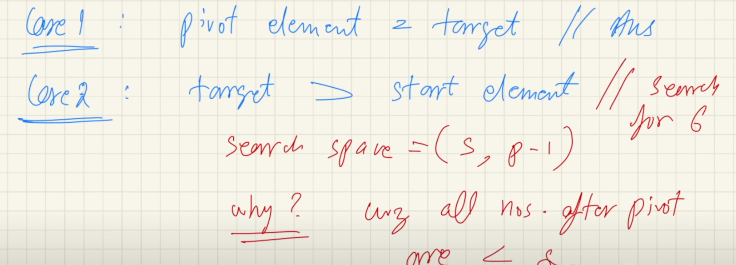 Case 1 : pivot element = target // Ans
Case 2 : target > start element // search
for 6
search space = (s, p-1)
why? cuz all nos. after pivot
are < s